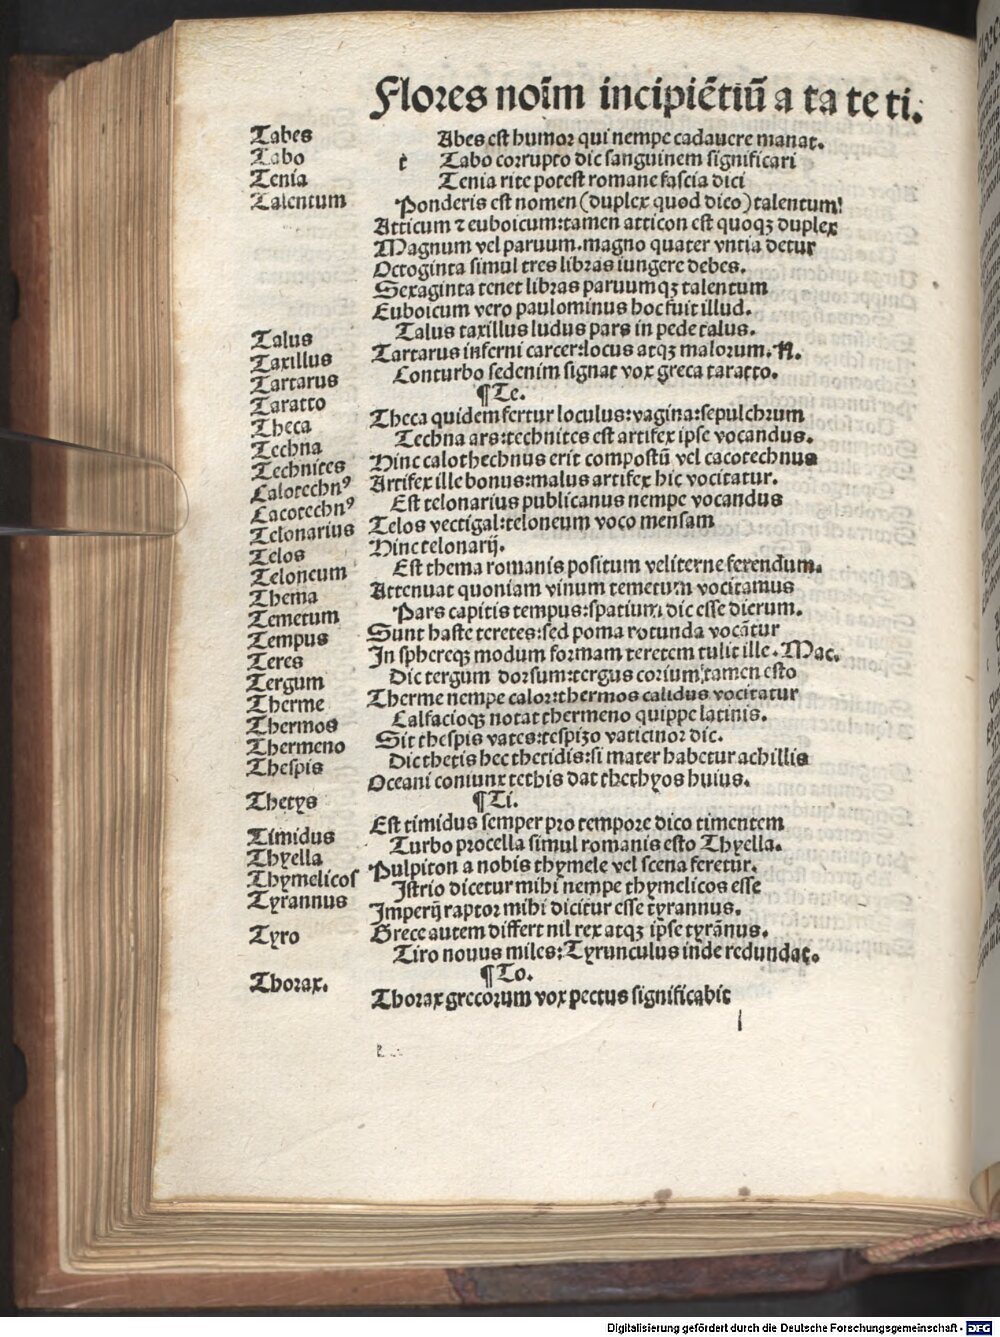 Flores noīm incipiētiū a ta te ti.
Tabes
Tabo
Tenia
Talentum
Talus
Taxillus
Tartarus
Taratto
Theca
Techna
Technites
Calotechnꝰ
Cacotechnꝰ
Telonarius
Telos
Teloneum
Thema
Temetum
Tempus
Teres
Tergum
Therme
Thermos
Thermeno
Thespis
Thetys
Timidus
Thyella
Thymelicos
Tyrannus
Tyro
Thorax.
t Abes est humor qui nempe cadauere manat.
Tabo corrupto dic sanguinem significari
Tenia rite potest romane fascia dici
Ponderis est nomen (duplex quod dico) talentum!
Atticum ⁊ euboicum:tamen atticon est quoqꝫ duplex
Magnum vel paruum.magno quater vntia detur
Octoginta simul tres libras iungere debes.
Sexaginta tenet libras paruumqꝫ talentum
Euboicum vero paulominus hoc fuit illud.
Talus taxillus ludus pars in pede talus.
Tartarus inferni carcer:locus atqꝫ malorum.R.
Conturbo sedenim signat vox greca taratto.
¶Te.
Theca quidem fertur loculus:vagina:sepulchrum
Techna ars:technites est artifex ipse vocandus.
Hinc calothechnus erit compostū vel cacotechnus
Artifex ille bonus:malus artifex hic vocitatur.
Est telonarius publicanus nempe vocandus
Telos vectigal:teloneum voco mensam
Hinc telonarij.
Est thema romanis positum veliterne ferendum.
Attenuat quoniam vinum temetum vocitamus
Pars capitis tempus:spatium dic esse dierum.
Sunt haste teretes:sed poma rotunda vocātur
In sphereqꝫ modum formam teretem tulit ille.Mac.
Dic tergum dorsum:tergus corium tamen esto
Therme nempe calor:thermos calidus vocitatur
Calfacioqꝫ notat thermeno quippe latinis.
Sit thespis vates:tespizo vaticinor dic.
Dic thetis hec thetidis:si mater habetur achillis
Oceani coniunx tethis dat thethyos huius.
¶Ti.
Est timidus semper pro tempore dico timentem
Turbo procella simul romanis esto Thyella.
Pulpiton a nobis thymele vel scena feretur.
Istrio dicetur mihi nempe thymelicos esse
Imperij raptor mihi dicitur esse tyrannus.
Grece autem differt nil rex atqꝫ ipse tyrānus.
Tiro nouus miles:Tyrunculus inde redundat.
¶To.
Thorax grecorum vox pectus significabit
l
Digitalisierung gefördert durch die Deutsche Forschungsgemeinschaft - DFG